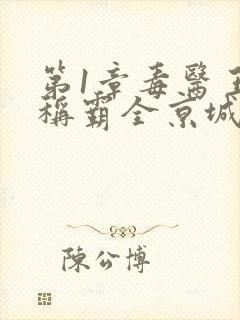 第1章毒醫
稱霸全京城
陳公博